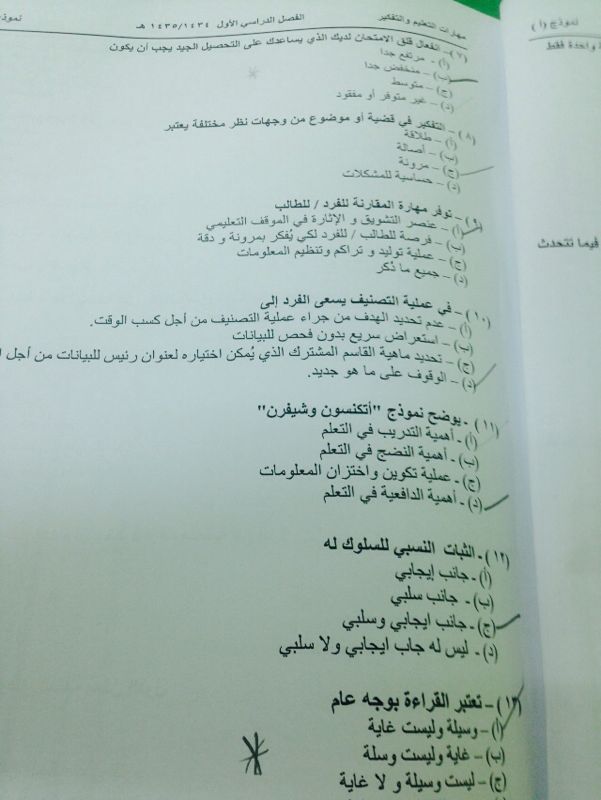 مهارات التعليم والتفكير
الفصل الدراسي الأول ١٤٣٤/ ١٤٣٥ هـ
نموذ
(٧) - انفعال قلق الامتحان لديك الذي يساعدك على التحصيل الجيد يجب أن يكون
(أ) - مرتفع جدا
(ب) - منخفض جدا
(ج) - متوسط
(د) - غير متوفر أو مفقود
(٨) - التفكير في قضية أو موضوع من وجهات نظر مختلفة يعتبر
(أ) - طلاقة
(ب) - أصالة
(ج) - مرونة
(د) - حساسية للمشكلات
(٩) - توفر مهارة المقارنة للفرد / للطالب
(أ) - عنصر التشويق و الإثارة في الموقف التعليمي
(ب) - فرصة للطالب / للفرد لكي يُفكر بمرونة و دقة
(ج) - عملية توليد و تراكم وتنظيم المعلومات
(د) - جميع ما ذُكر
(١٠) - في عملية التصنيف يسعى الفرد إلى
(أ) - عدم تحديد الهدف من جراء عملية التصنيف من أجل كسب الوقت.
(ب) - استعراض سريع بدون فحص للبيانات
(ج) - تحديد ماهية القاسم المشترك الذي يُمكن اختياره لعنوان رئيس للبيانات من أجل
(د) - الوقوف على ما هو جديد.
(١١) - يوضح نموذج "أتكنسون وشيفرن"
(أ) - أهمية التدريب في التعلم
(ب) - أهمية النضج في التعلم
(ج) - عملية تكوين واختزان المعلومات
(د) - أهمية الدافعية في التعلم
(١٢) - الثبات النسبي للسلوك له
(أ) - جانب إيجابي
(ب) - جانب سلبي
(ج) - جانب ايجابي وسلبي
(د) - ليس له جاب ايجابي ولا سلبي
(١٣) - تعتبر القراءة بوجه عام
(أ) - وسيلة وليست غاية
(ب) - غاية وليست وسلة
(ج) - ليست وسيلة و لا غاية
نموذج (أ)
واحدة فقط
فيما تتحدث